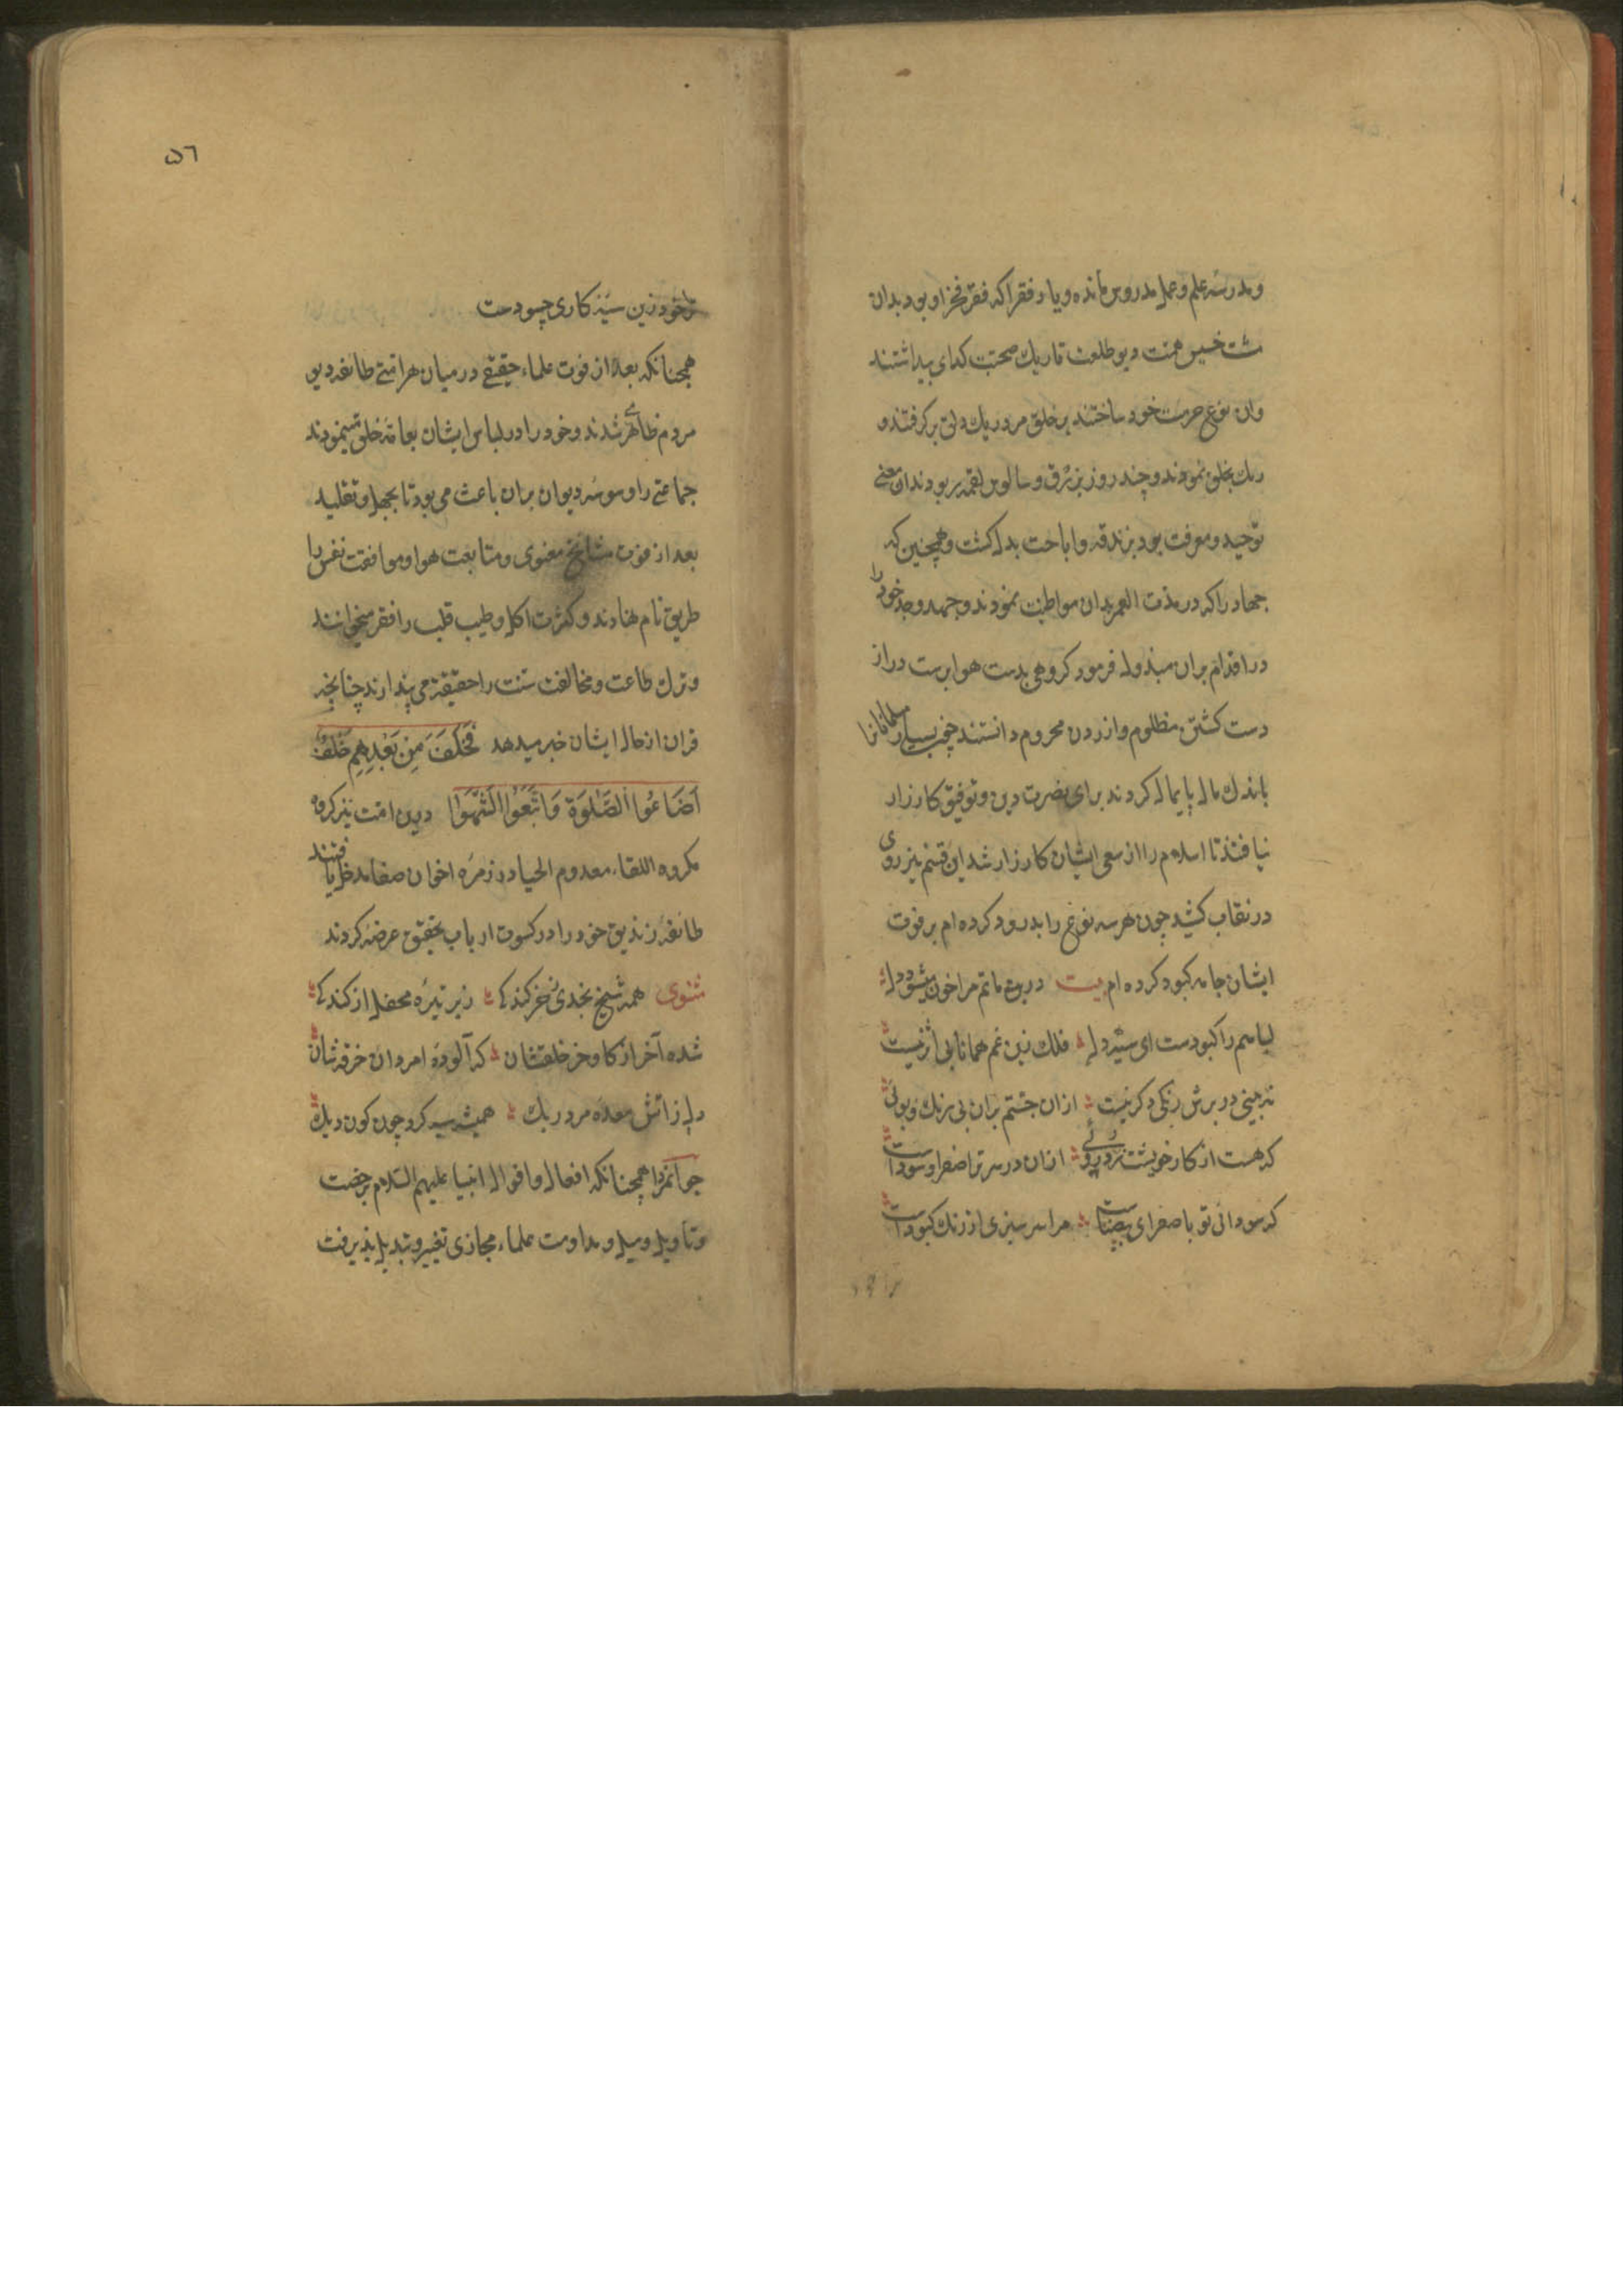 ومدرسهٔ علم وعمل مدروس مانده ویا رفقرا که فقر فخر او بود بدان
مشت خسیس همت دیو طلعت تاریک صحبت کدای بیداشتند
وان نوع حرمت خود ساختند بر خلق مردریک دلق بر کرفتند و
ریک بخلق نمودند وچند روز بزرق وسالوس لقمه ربودند ان معنی
توحید ومعرفت بود بزندقه واباحت بدل کشت وهمچنین که
جهاد را که در مدت العمر بدان مواظبت نمودند وجهد وجد خود را
در اقدام بران مبذول فرمود کروهی بدست هوا برست دراز
دست کشتن مظلوم وازردن محروم دانستند چون بسیار مسلمانانرا
باندک مال پایمال کردند برای نصرت دین وتوفیق کارزار
نیافتند تا اسلام را از سعی ایشان کار زار شد این قسم نیز روی
در نقاب کشید چون هر سه نوع را بدرود کرده ام بر فوت
ایشان جامه کبود کرده ام بیت درین ماتم مرا خون میشود دل
لباسم زا کبودست ای سیه دل فلک زین غم همانا بی اثر نیست
نه بینی در برش رنکی دکر نیست ازان جستم بران بی رنک وبوئی
که هست از کار خویشت زرد روئی ازان در سر ترا صفرا وسوداست
که سودائی تو با صفرای بیضاست مرا سر سبزی از رنک کبوداست
۵٦
ترا خود زین سیه کاری چه سودست
همچنانکه بعد از فوت علماء حقیقی در میان هر امتی طائفه دیو
مردم ظاهر شدند وخود را در لباس ایشان بعامهٔ خلق می نمودند
جماعتی را وسوسهٔ دیوان بران باعث می بود تا بجهل وتقلید
بعد از فوت مشایخ معنوی ومتابعت هوا وموافقت نفس را
طریق نام نهادند وکثرت اکل وطیب قلب را فقر میخوانند
وترک طاعت ومخالفت سنت را حقیقة می پندارند چنانچه
قران از حال ایشان خبر میدهد فَخَلَفَ مِنْ بَعْدِهِمْ خَلْفٌ
اَضَاعُوا الصَّلٰوةَ وَاتَّبَعُوا الشَّهَوَاتِ درین امت نیز کروه
مکروه اللقاء معدوم الحیا در زمرهٔ اخوان صفا مدخل یافتند
طائفهٔ زندیق خود را در کسوت ارباب تحقیق عرضه کردند
مثنوی همه شیخ نجدی خر کندکی زبر تیره محفل از کندکی
شده آخر از کاو خر خلقشان که آلودهٔ امردان خرقه شان
دل ز آتش معده مردریک همیشه سیه کرد چون کون دیک
جوانمردا همچنانکه افعال واقوال انبیا علیهم السلام برخصت
وتاویل ومیل ومداومت علماء مجازی تغییر وتبدیل پذیرفت